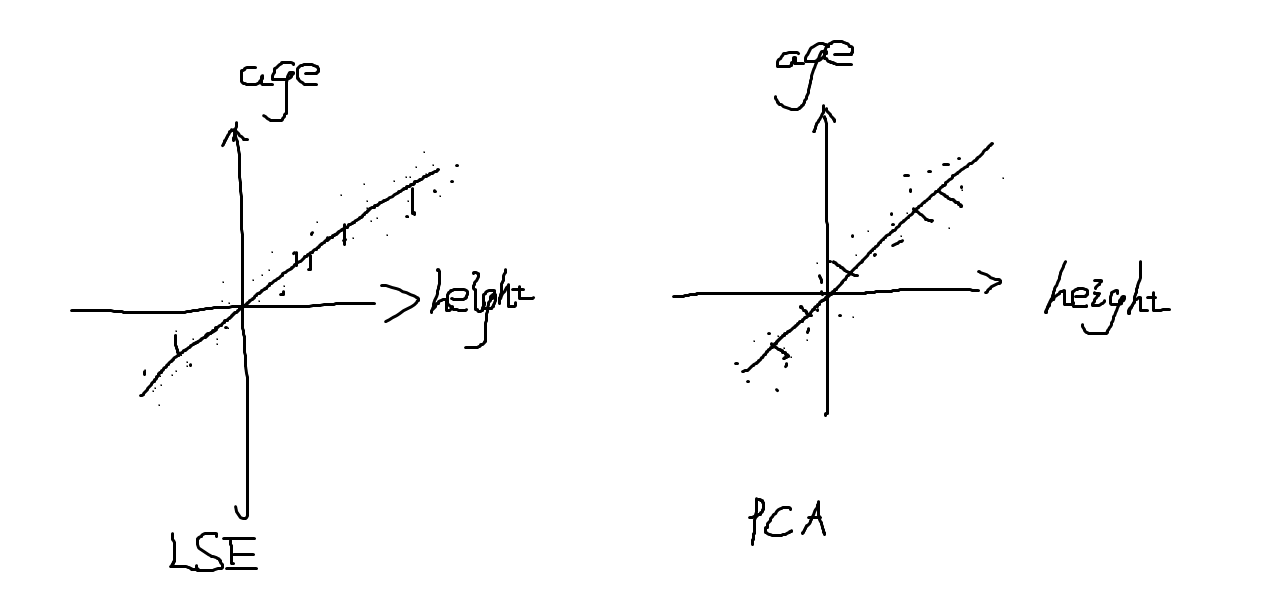 age
height
LSE
age
height
PCA